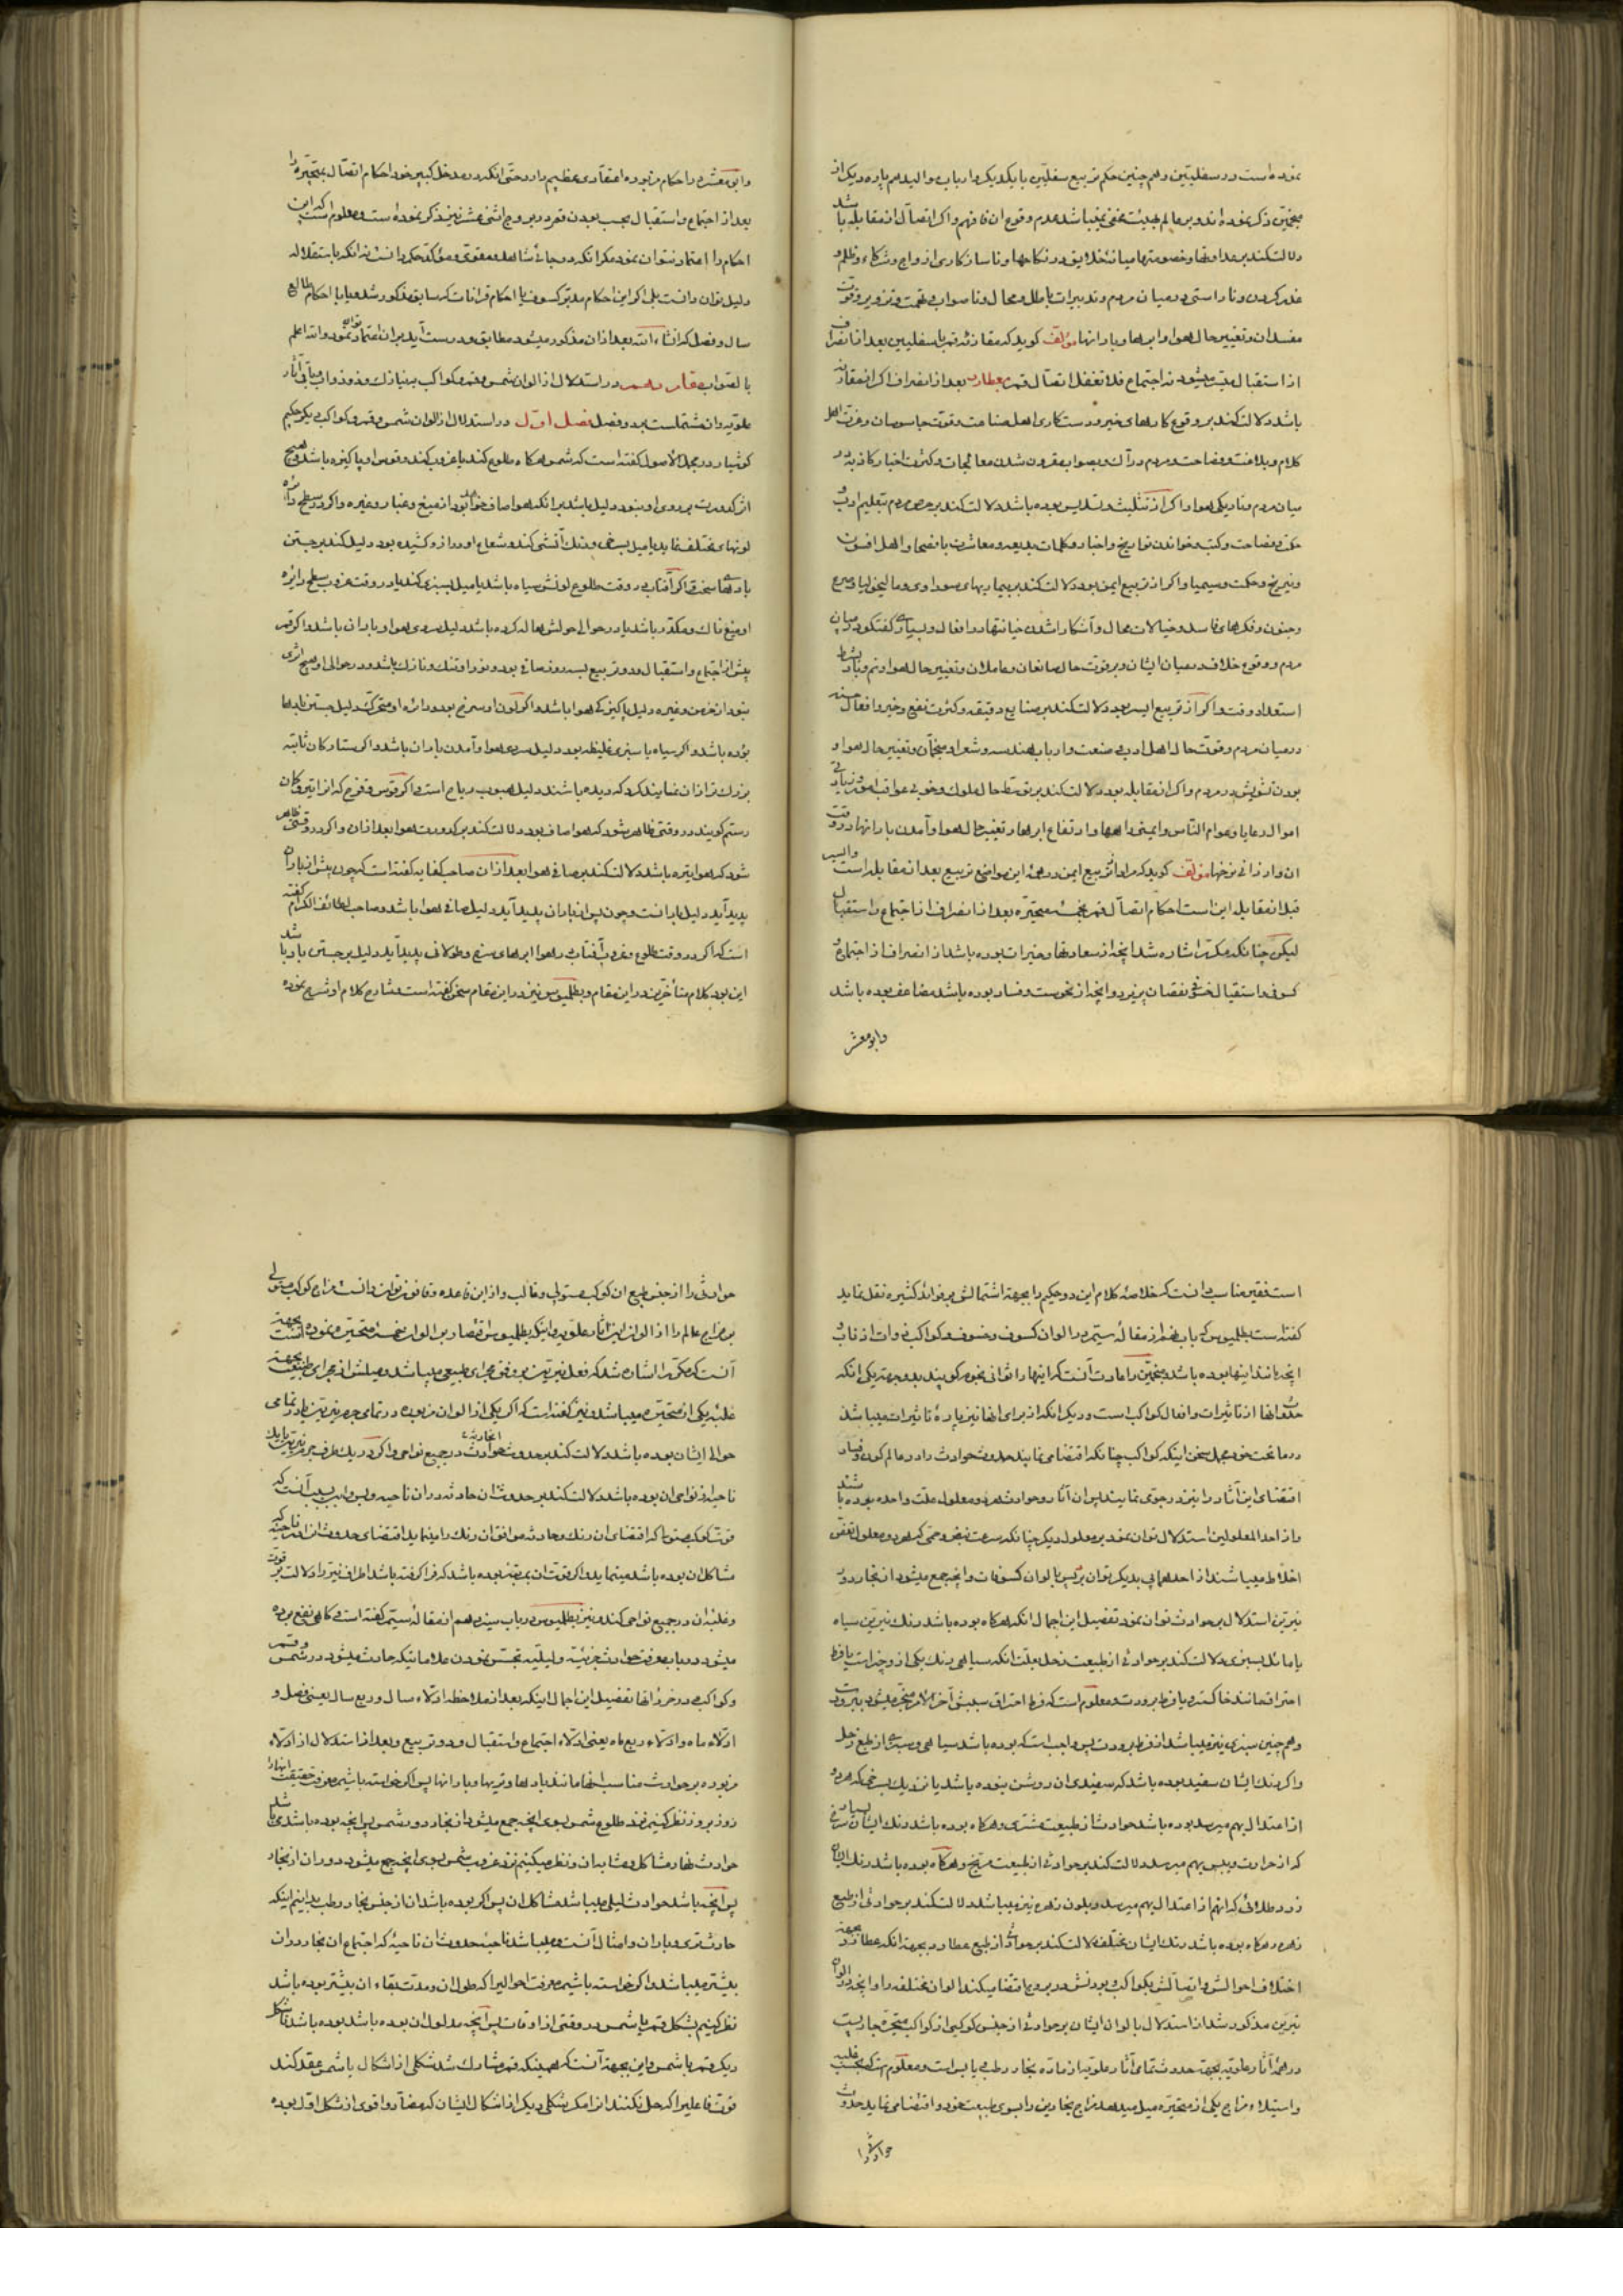 نموده است در سفلیتین و همچنین حکم تربیع سفلیین با یکدیگر و ارباب
منجمین ذکر نموده اند و بر عالم هیئت مخفی نمیباشد عدم وقوع ان فافهم و اگر اتصال از مقابله باشد
دلالت کند بر عداوتها و خصومتها میانه خلایق و در نکاحها و ناسازکاری ازواج و شرکاء و ظلم و
غدر کردن و ناراستی در میان مردم و تدبیرات باطل و محال و ناصواب و تهمت و تزویر و قوت
مفسدان و تغییر حال هوا و ابرها و بارانها مؤلف کوید که مقارنه قمر با سفلیین بعد از انصراف
از استقبال میشود نه اجتماع فلا تغفل اتصال قمر بعطارد بعد از انصراف اگر از مقارنه
باشد دلالت کند بر وقوع کارهای خیر و درستکاری اهل صناعت و قوت جاسوسان و عزت اهل
کلام و بلاغت و فصاحت و مردم در آن و بصواب مقرون شدن معالجات و کثرت اخبار کاذبه در
میان مردم و تاریکی هوا و اگر از تثلیث و تسدیس بوده باشد دلالت کند بر حرص مردم بتعلیم ادب و
حکمت و فصاحت و کتب و خواندن تواریخ و اخبار و کلمات بدیعه و معاشرت با فصحا و اهل افسون
و نیرنج و حکمت و سیمیا و اگر از تربیع ایمن بود دلالت کند بر بیماریهای سوداوی و مالیخولیا و صرع
و جنون و فکرهای فاسد و خیالات محال و آشکارا شدن خیانتها در افعال و بسیاری گفتگو در میان
مردم و وقوع خلاف در میان ایشان و بر قوت حال صانعان و عاملان و تغییر حال هوا و نم و باد بشرط
استعداد وقت و اگر از تربیع ایسر بود دلالت کند بر صنایع دقیقه و کثرت نفع و خیر و افعال حسنه
در میان مردم و قوت حال اهل ادب و صنعت و ارباب هندسه و شعرا و منجمان و تغییر حال هوا و
بودن تشویش در مردم و اگر از مقابله بود دلالت کند بر توسط حال ملوک و خوبی عواقب امور و زیادتی
اموال رعایا و عوام الناس و ایمنی راهها و ارتفاع ابرها و تغییر حال هوا و آمدن بارانها در وقت
ان و ارزانی نرخها مؤلف کوید که مراد از تربیع ایمن در همه این مواضع تربیع بعد از مقابله است و ایسر
قبل از مقابله این است احکام اتصال قمر بخمسه متحیره بعد از انصراف از اجتماع و استقبال
لیکن چنانکه مکرر اشاره شد انچه از سعادتها و خیرات بوده باشد از انصراف از اجتماع
کسوفی و استقبال خسوفی نقصان پذیرد و انچه از نحوست و فساد بوده باشد مضاعف بوده باشد
وابو معشر
وابو معشر را احکام مزبوره اعتقادی عظیم دارد حتی انکه در مدخل کبیر خود احکام اتصال بمتحیره را
بعد از اجتماع و استقبال بحسب بودن قمر در بروج اثنی عشر نیز ذکر نموده است و معلوم است که این
احکام را اعتماد نتوان نمود مکر انکه در جائی شاهد و مقوی و مؤکد حکم دانست نه انکه باستقلاله
دلیل توان دانست بلی اگر این احکام مدبر کسوف یا احکام قرانات که سابق مذکور شد و یا با احکام طالع
سال و فصل که انشاء الله بعد از ان مذکور میشود مطابق و درست آید بر ان اعتماد توان نمود و الله اعلم
بالصواب مقاله دهم در استدلال از الوان شمس و قمر و کواکب بنیازک و ذوذوابه و باقی آثار
علویه و ان مشتملست بر دو فصل فصل اول در استدلال از الوان شمس و قمر و کواکب دیگر حکیم
کوشیار در مجمل الاصول کفته است که شمس هرگاه طلوع کند یا غروب کند و قرص او پاکیزه باشد و هیچ
اثر کدورت بر روی او نبود دلیل باشد بر انکه هوا صاف خواهد بود از میغ و غبار و غیره و اگر در سطح دائره
لونهای مختلف نماید یا میل بسرخی و رنگ آتشی کند و شعاع او دراز و کشیده بود دلیل کند بر جستن
بادهای سخت و اگر آفتاب در وقت طلوع لونش سیاه باشد یا میل بسبزی کند یا در وقت غروب سطح دائره
او میغ ناک و مکدر باشد یا در حوالی حولش هاله کرده باشد دلیل سردی هوا و باران باشد و اگر قمر
پیش از اجتماع و استقبال و دو تربیع بسه روز صافی بود و نور او تنک و نازک باشد و در حوالی او هیچ اثری
نبود از خرمن و غیره دلیل پاکیزگی هوا باشد و اگر لون او سرخ بود و دائره او متحرک دلیل جستن بادها
بوده باشد و اگر سیاه یا سبزی غلیظه بود دلیل سردی هوا و آمدن باران باشد و اگر ستارگان ثابته
بزرگ تر از ان نمایند که دیده باشند دلیل هبوب ریاح است و اگر قوس و قزح که انرا تیر و کمان
رستم کویند در وقتی ظاهر شود که هوا صاف بود دلالت کند بر کدورت هوا بعد از ان و اگر در وقتی ظاهر
شود که هوا تیره باشد دلالت کند بر صافی هوا بعد از ان صاحب کفایه کفته است که چون پیش از باران
پدید آید دلیل بارانست و چون پس از باران پدید آید دلیل صافی هوا باشد و صاحب لطائف الکلام کفته
است که اگر در وقت طلوع و غروب آفتاب در هوا ابرهای سرخ و طولانی پدید آید دلیل بر جستن باد باشد
این بود کلام متأخرین در این مقام و بطلمیوس نیز در این مقام سخن کفته است و شارح کلام او شرح نموده
است فقیر مناسب دانست که خلاصه کلام این دو حکیم را بجهة اشتمالش بر فوائد کثیره نقل نماید
کفته است بطلمیوس که باب نهم از مقاله سیتمه در الوان کسوف و خسوف و کواکب ذوات اذناب و
انچه مانند اینها بوده باشد و منجمین را عادت آنست که اینها را ثوانی نجوم کویند بدو جهة یکی انکه
حدوث انها از تاثیرات و افعال کواکب است و دیگر انکه از برای انها نیز پاره تاثیرات میباشد
در ما تحت خود مجمل سخن اینکه کواکب چنانکه اقتضا می نمایند حدوث حوادث را در عالم کون و فساد
اقتضای این آثار را نیز در جو می نمایند پس ان آثار و حوادث هر دو معلول علت واحده بوده باشند
و از احد المعلولین استدلال توان نمود بر معلول دیگر چنانکه سرعت نبض و حمی که هر دو معلول تعفن
اخلاط میباشند از احدهما پی بدیگر توان برد پس بالوان کسوفات و انچه جمع میشود از بخار در دور
نیرین استدلال بر حوادث توان نمود تفصیل این اجمال انکه هرگاه بوده باشد رنگ نیرین سیاه
یا مائل بسبزی دلالت کند بر حوادثی از طبیعت زحل بعلت انکه سیاهی رنگ یکی از دو چیز است یا فرط
احتراق مانند خاکستر و یا فرط برودت و معلوم است که فرط احتراق سببش آخر الامر منجر میشود ببرودت
و همچنین سبزی نیز میباشد از فرط برودت پس واجب است که بوده باشد سیاهی و سبزی از طبع زحل
و اگر رنگ ایشان سفید بوده باشد که سفیدی ان روشن بوده باشد یا نزدیک بسرخی که هر دو
از اعتدال بهم میرسد بوده باشد حوادث از طبیعت مشتری و هرگاه بوده باشد رنگ ایشان بسیار سرخ
که از حرارت و یبس بهم میرسد دلالت کند بر حوادثی از طبیعت مریخ و هرگاه بوده باشد رنگ ایشان
زرد طلائی که انهم از اعتدال بهم میرسد و بلون زهره نیز میباشد دلالت کند بر حوادثی از طبع
زهره و هرگاه بوده باشد رنگ ایشان مختلف دلالت کند بر حوادثی از طبع عطارد بجهة انکه عطارد بجهة
اختلاف احوالش و اتصالش بکواکب و بودنش در بروج اقتضا میکند الوان مختلفه را و انچه در الوان
نیرین مذکور شد از استدلال بالوان ایشان بر حوادثی از جنس کوکبی از کواکب متحیره جاریست
در همه آثار علویه بجهة حدوث تمامی آثار علویه از ماده بخار رطب یا یابس است و معلوم است که بحسب غلبه
و استیلاء مزاج یکی از متحیره میل میدهد مزاج بخارین را بسوی طبیعت خود و اقتضا می نماید حدوث
حوادثی را
حوادثی را از جنس طبع ان کوکب مستولی و غالب و از این قاعده و قانون توان دانست مزاج کوکب مستولی
بر مزاج عالم را از الوان این آثار علویه و اینکه بطلمیوس اقتصار بر الوان خمسه متحیره نموده است بجهة
آنست که مکرر اشاره شد که فعل نیرین بر وفق مجرای طبیعی میباشد و میلش از مجرای طبیعت بجهة
غلبه یکی از متحیره میباشد و نیز کفته است که اگر یکی از الوان مزبوره در تمامی جرم نیرین یا در تمامی
حوالی ایشان بوده باشد دلالت کند بر حدوث حوادث در جمیع نواحی و اگر در یک طرف جرم نیرین یا یک
ناحیه از نواحی ان بوده باشد دلالت کند بر حدوث ان حادثه در ان ناحیه و بس و این بسبب آنست که
قوت کوکب مستولی که اقتضای ان رنگ و حادثه موافق ان رنگ را مینماید اقتضای حدوث ان در ناحیه که
مشاکل ان بوده باشد مینماید و اگر قوت ان بمرتبه بوده باشد که فرا کرفته باشد اطراف نیر را دلالت بر قوت
و غلبه ان در جمیع نواحی کند و نیز بطلمیوس در باب سیزدهم از مقاله سیتمه کفته است که کاهی نفع بوده
میشود در باب معرفت حوادث جزئیه و لیلیه تجسس نمودن علاماتیکه حادث میشود در شمس و قمر
و کواکب تفصیل این اجمال اینکه بعد از ملاحظه ادلاء سال و ربع سال یعنی فصل و
ادلاء ماه و ادلاء ربع ماه یعنی ادلاء اجتماع و استقبال و دو تربیع و بعد از استدلال از ادلاء
مزبوره بر حوادث مناسب انها مانند بادها و تریها و بارانها پس اگر خواسته باشیم معرفت حقیقت انها را
روز بروز نظر کنیم نزد طلوع شمس بسوی انچه جمع میشود از بخار در دور شمس پس انچه بوده باشد میباشد
حوادث نهار مشاکل و مشابه ان و نظر میکنیم نزد غروب شمس بسوی انچه جمع میشود در دور ان از بخار
پس انچه باشد حوادث لیلی میباشد مشاکل ان پس اگر بوده باشد ان از جنس بخار رطب بدانیم اینکه
حادث تری و باران و امثال آنست و میباشد ناحیه حدوث ان ناحیه که اجتماع ان بخار در ان
بیشتر میباشد و اگر خواسته باشیم معرفت احوالی را که طول ان و مدت بقاء ان بیشتر بوده باشد
نظر کنیم بشکل قمر با شمس در وقتی از اوقات پس انچه مدلول ان بوده باشد بوده باشد تا شکل
دیگر قمر با شمس و این بجهة آنست که همینکه قمر مشارک شد شکلی از اشکال با شمس عقد کند
قوت فاعلیرا که حل نکنند انرا مکر بشکلی دیگر از اشکال ایشان که مضاد و اقوی از شکل اول بوده